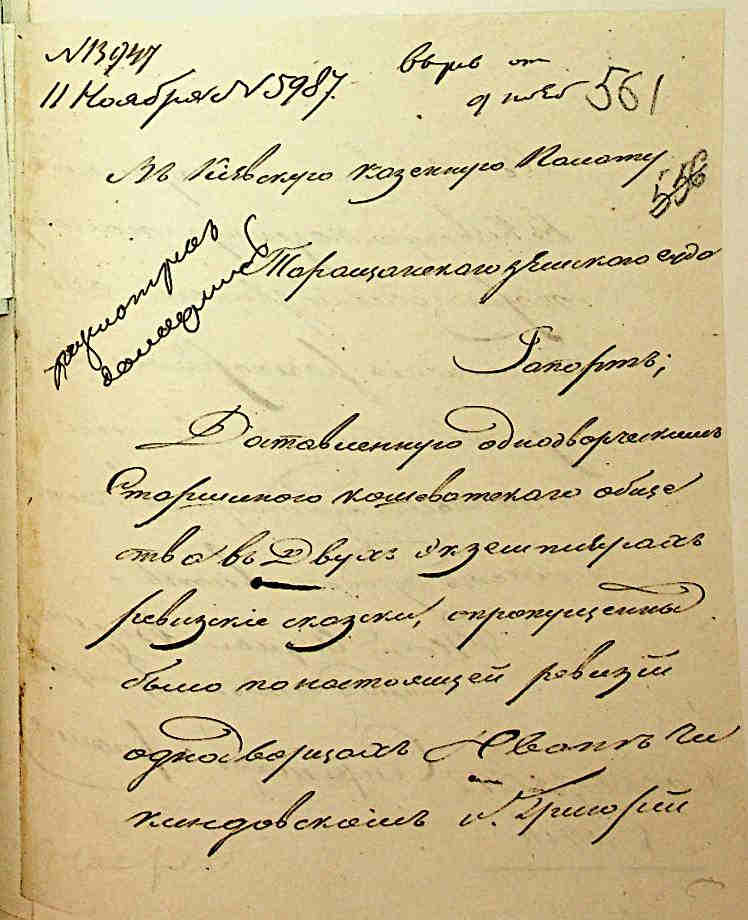 N 13947
11 Ноября N 5987.
561
Въ Кіевскую казенную Палату
556
Таращанскаго земскаго суда
Рапортъ;
Доставленную однодворческимъ
Старшиною кошеватскаго обще
ства въ Двухъ Экземплярахъ
ревизскіе сказки, опропущенныхъ
было по настоящей ревизіи
однодворцахъ Иванъ Чи
киндовскомъ и Григорій